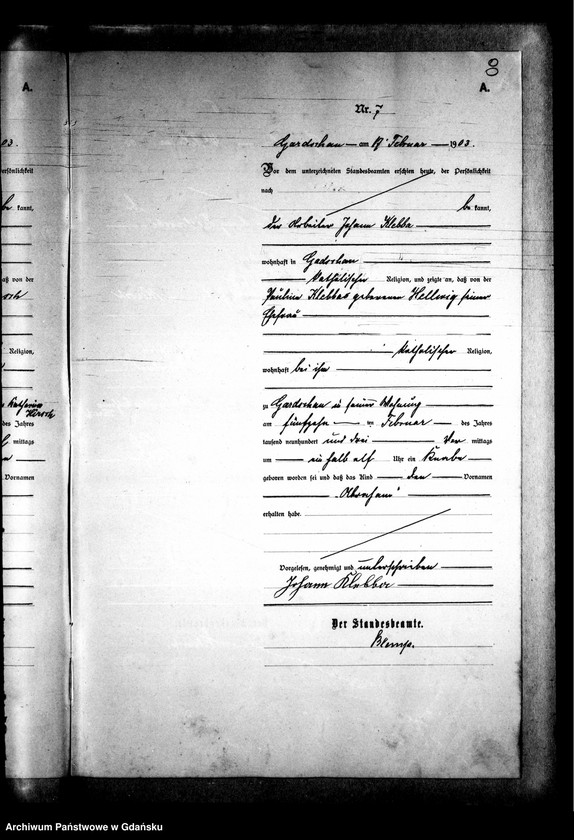 8
A.
A.
Nr. 7
03.
Gardschau am 17 Februar 1903.
ersönlichkeit
Vor dem unterzeichneten Standesbeamten erschien heute, der Persönlichkeit
nach
kannt,
be kannt,
der Arbeiter Johann Klebba
wohnhaft in Gadschau
daß von der
katholischer Religion, und zeigte an, daß von der
Paulina Klebba geborenen Hellwig seiner
Ehefrau
Religion,
katholischer Religion,
wohnhaft bei ihm
Katharina
Hirsch
zu Gardschau in seiner Wohnung
des Jahres
am fünfzehn ten Februar des Jahres
mittags
tausend neunhundert und drei Vor mittags
um ein halb elf Uhr ein Knabe
Vornamen
geboren worden sei und daß das Kind den Vornamen
erhalten habe.
Vorgelesen, genehmigt und unterschrieben
Johann Klebba
Der Standesbeamte.
Archiwum Państwowe w Gdańsku